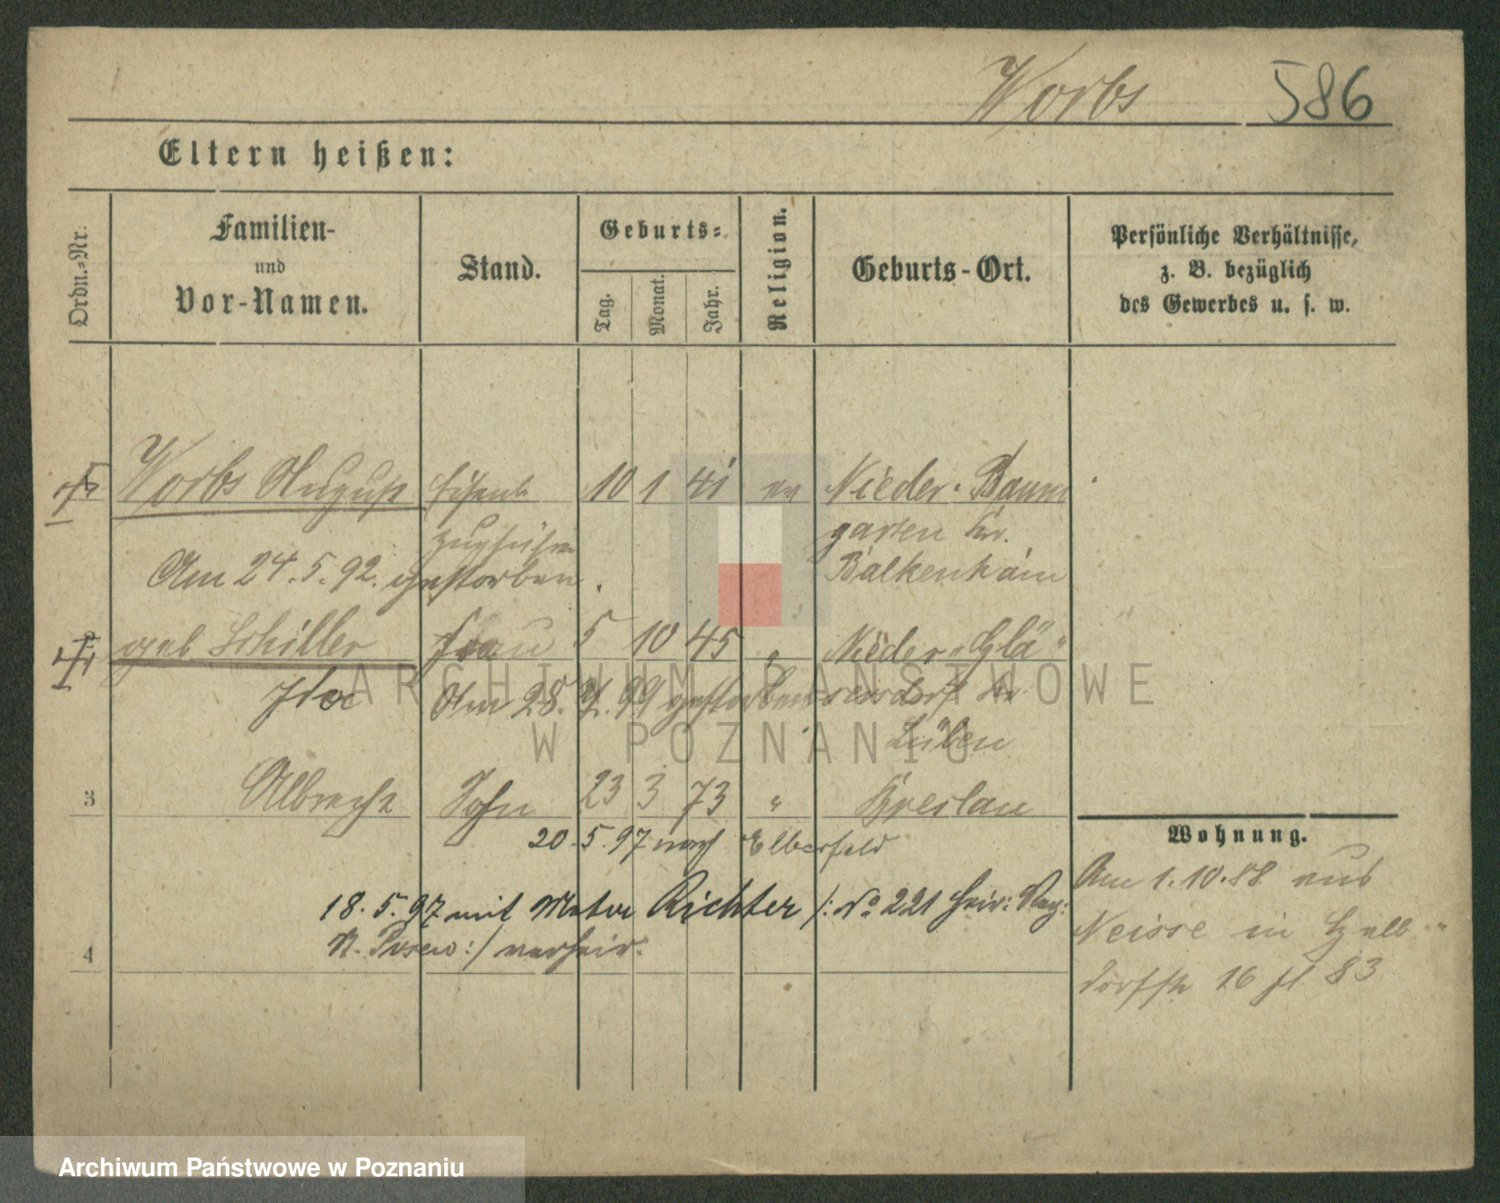 Worbs 586
Eltern heißen:
Ordn.-Nr.
Familien-
und
Vor-Namen.
Stand.
Geburts-
Tag.
Monat.
Jahr.
Religion.
Geburts-Ort.
Persönliche Verhältnisse,
z. B. bezüglich
des Gewerbes u. s. w.
Worbs August Eisenb 10 1 41 ev Nieder-Baum
zugführer garten Kr.
Am 24.5.92. gestorben. Bolkenhain
geb Schiller Frau 5 10 45 " Nieder-Glä
Ida Am 28. 99 gestorben sersdorf Kr
Lüben
3 Albrecht Sohn 23 3 73 " Breslau
20.5.97 nach Elberfeld
18.5.97 mit Richter /: No 221 Heir: Reg:
4 St. Posen :/ verheir.
Wohnung.
Am 1.10.88 aus
Neisse in
dorfstr 16 83
ARCHIWUM PAŃSTWOWE
W POZNANIU
Archiwum Państwowe w Poznaniu